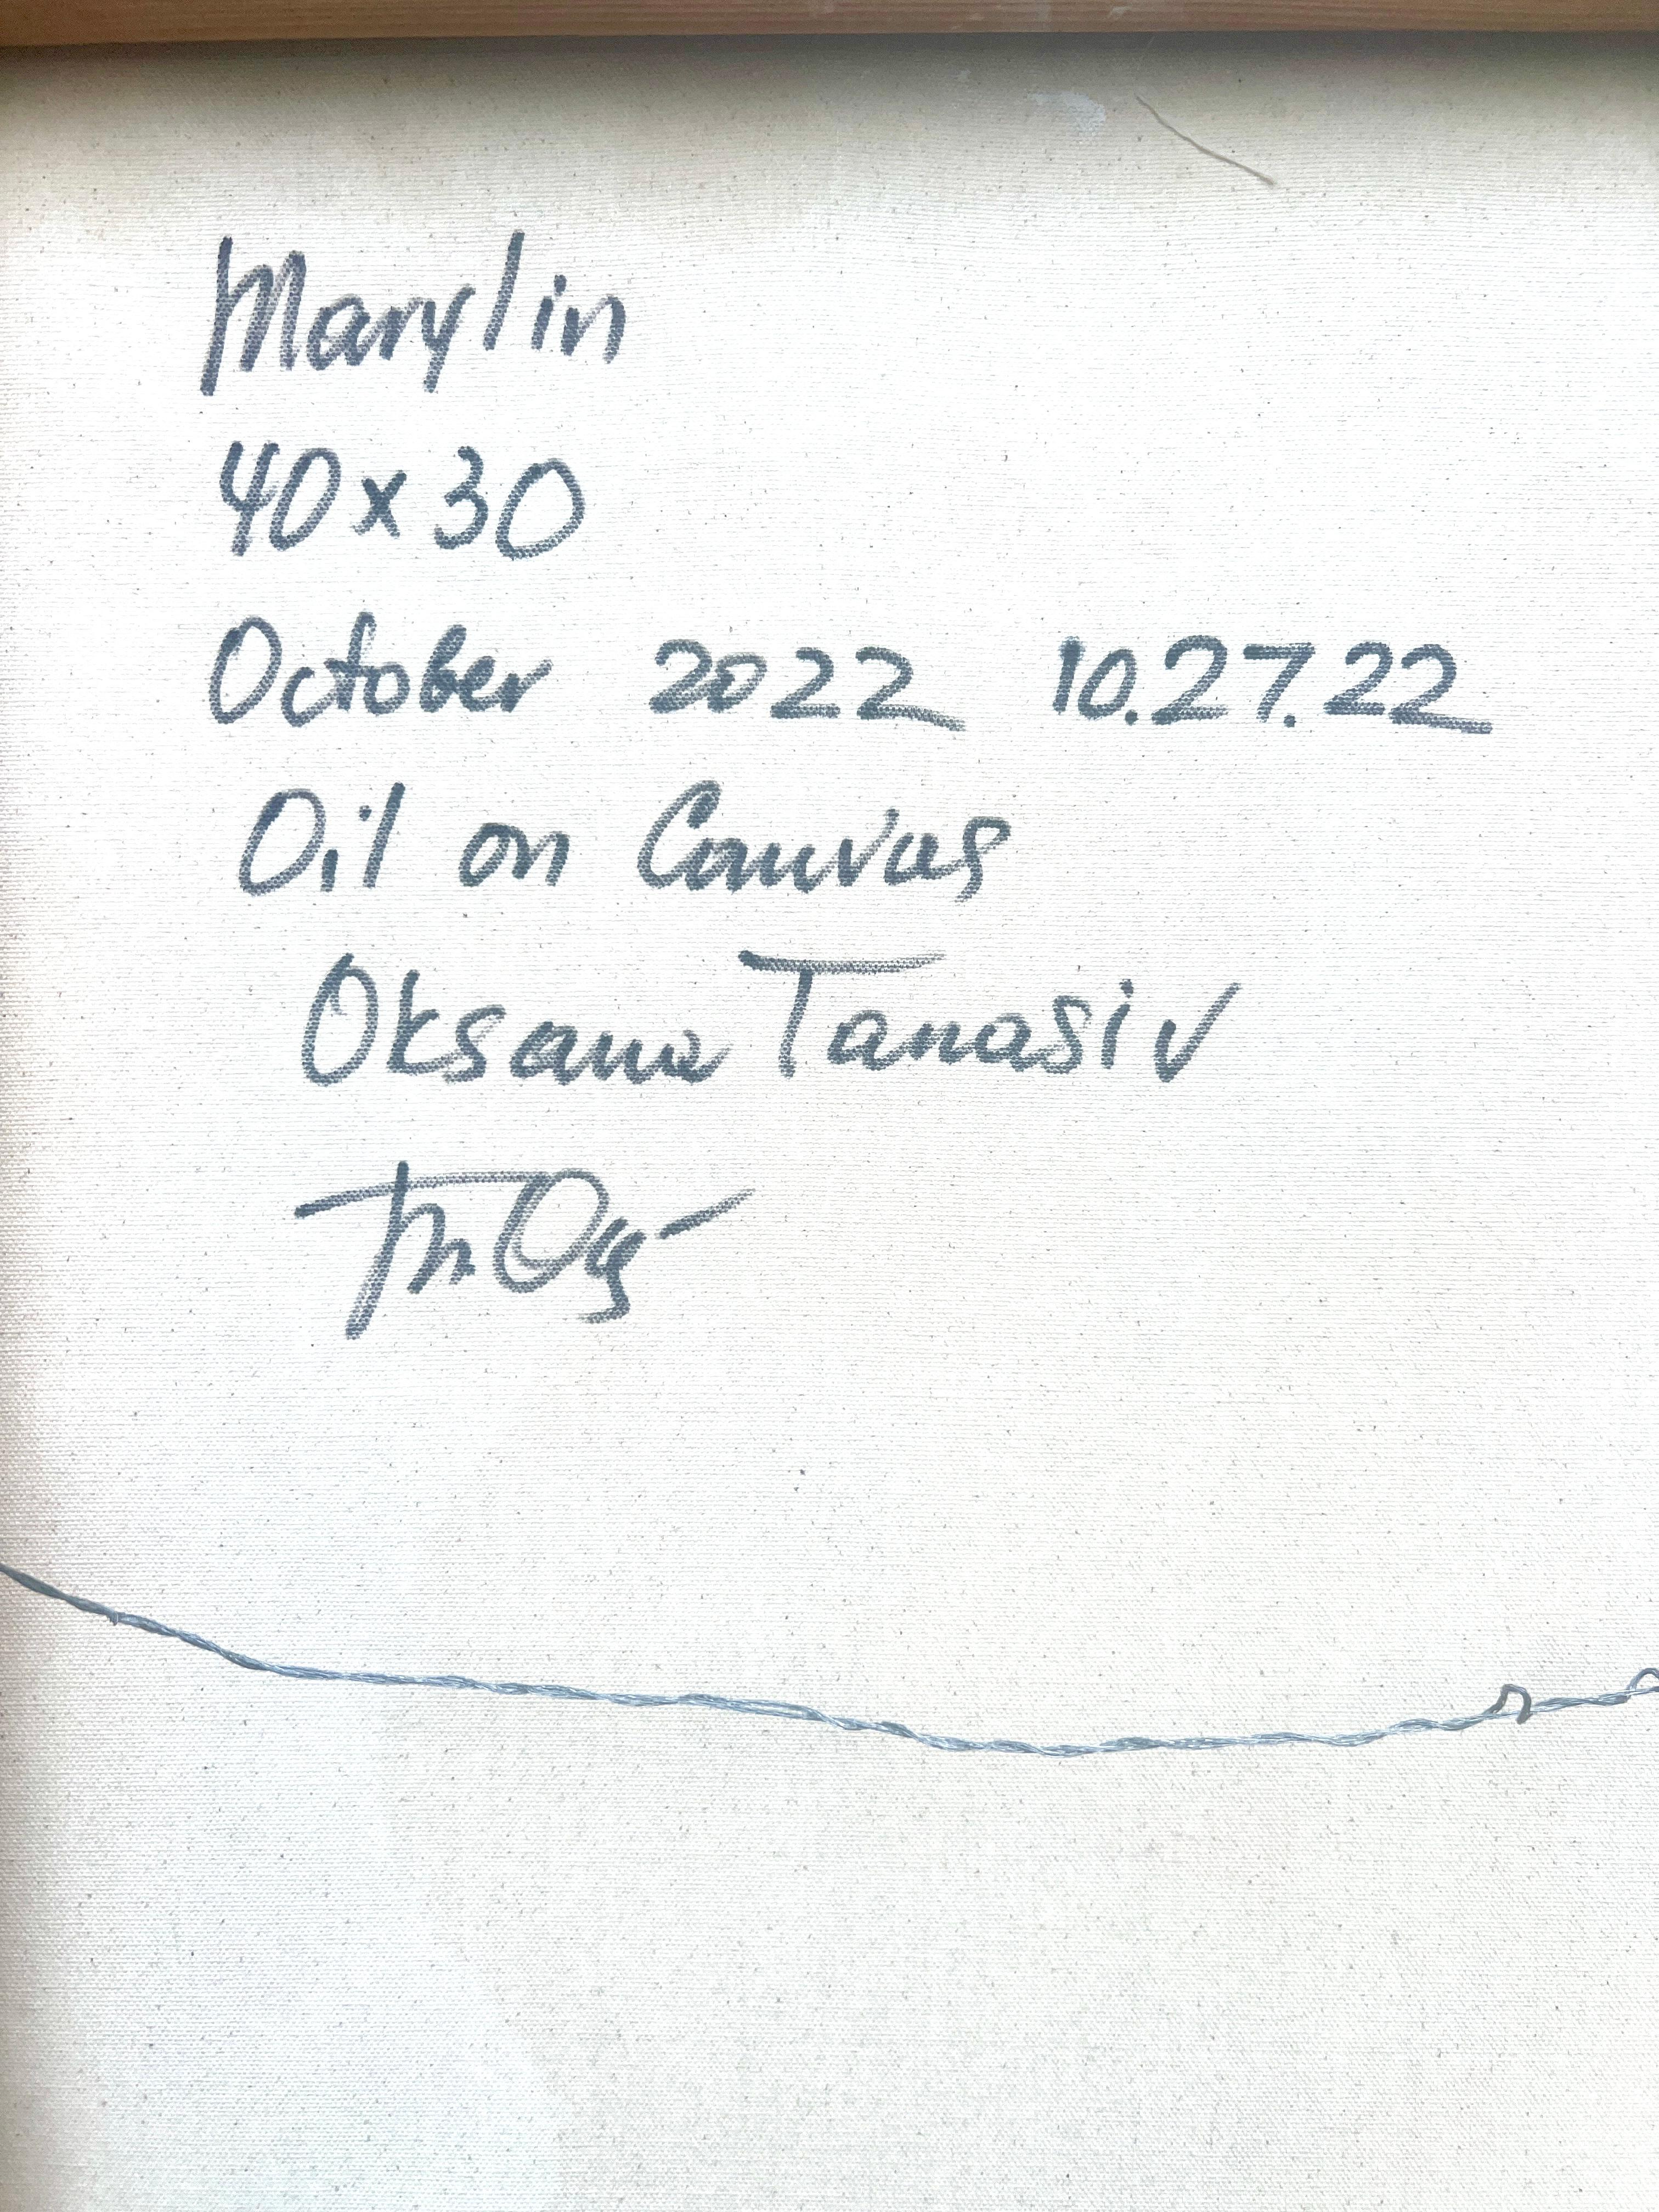 Marylin
40x30
October 2022 10.27.22
Oil on Canvas
Oksana Tanasiv